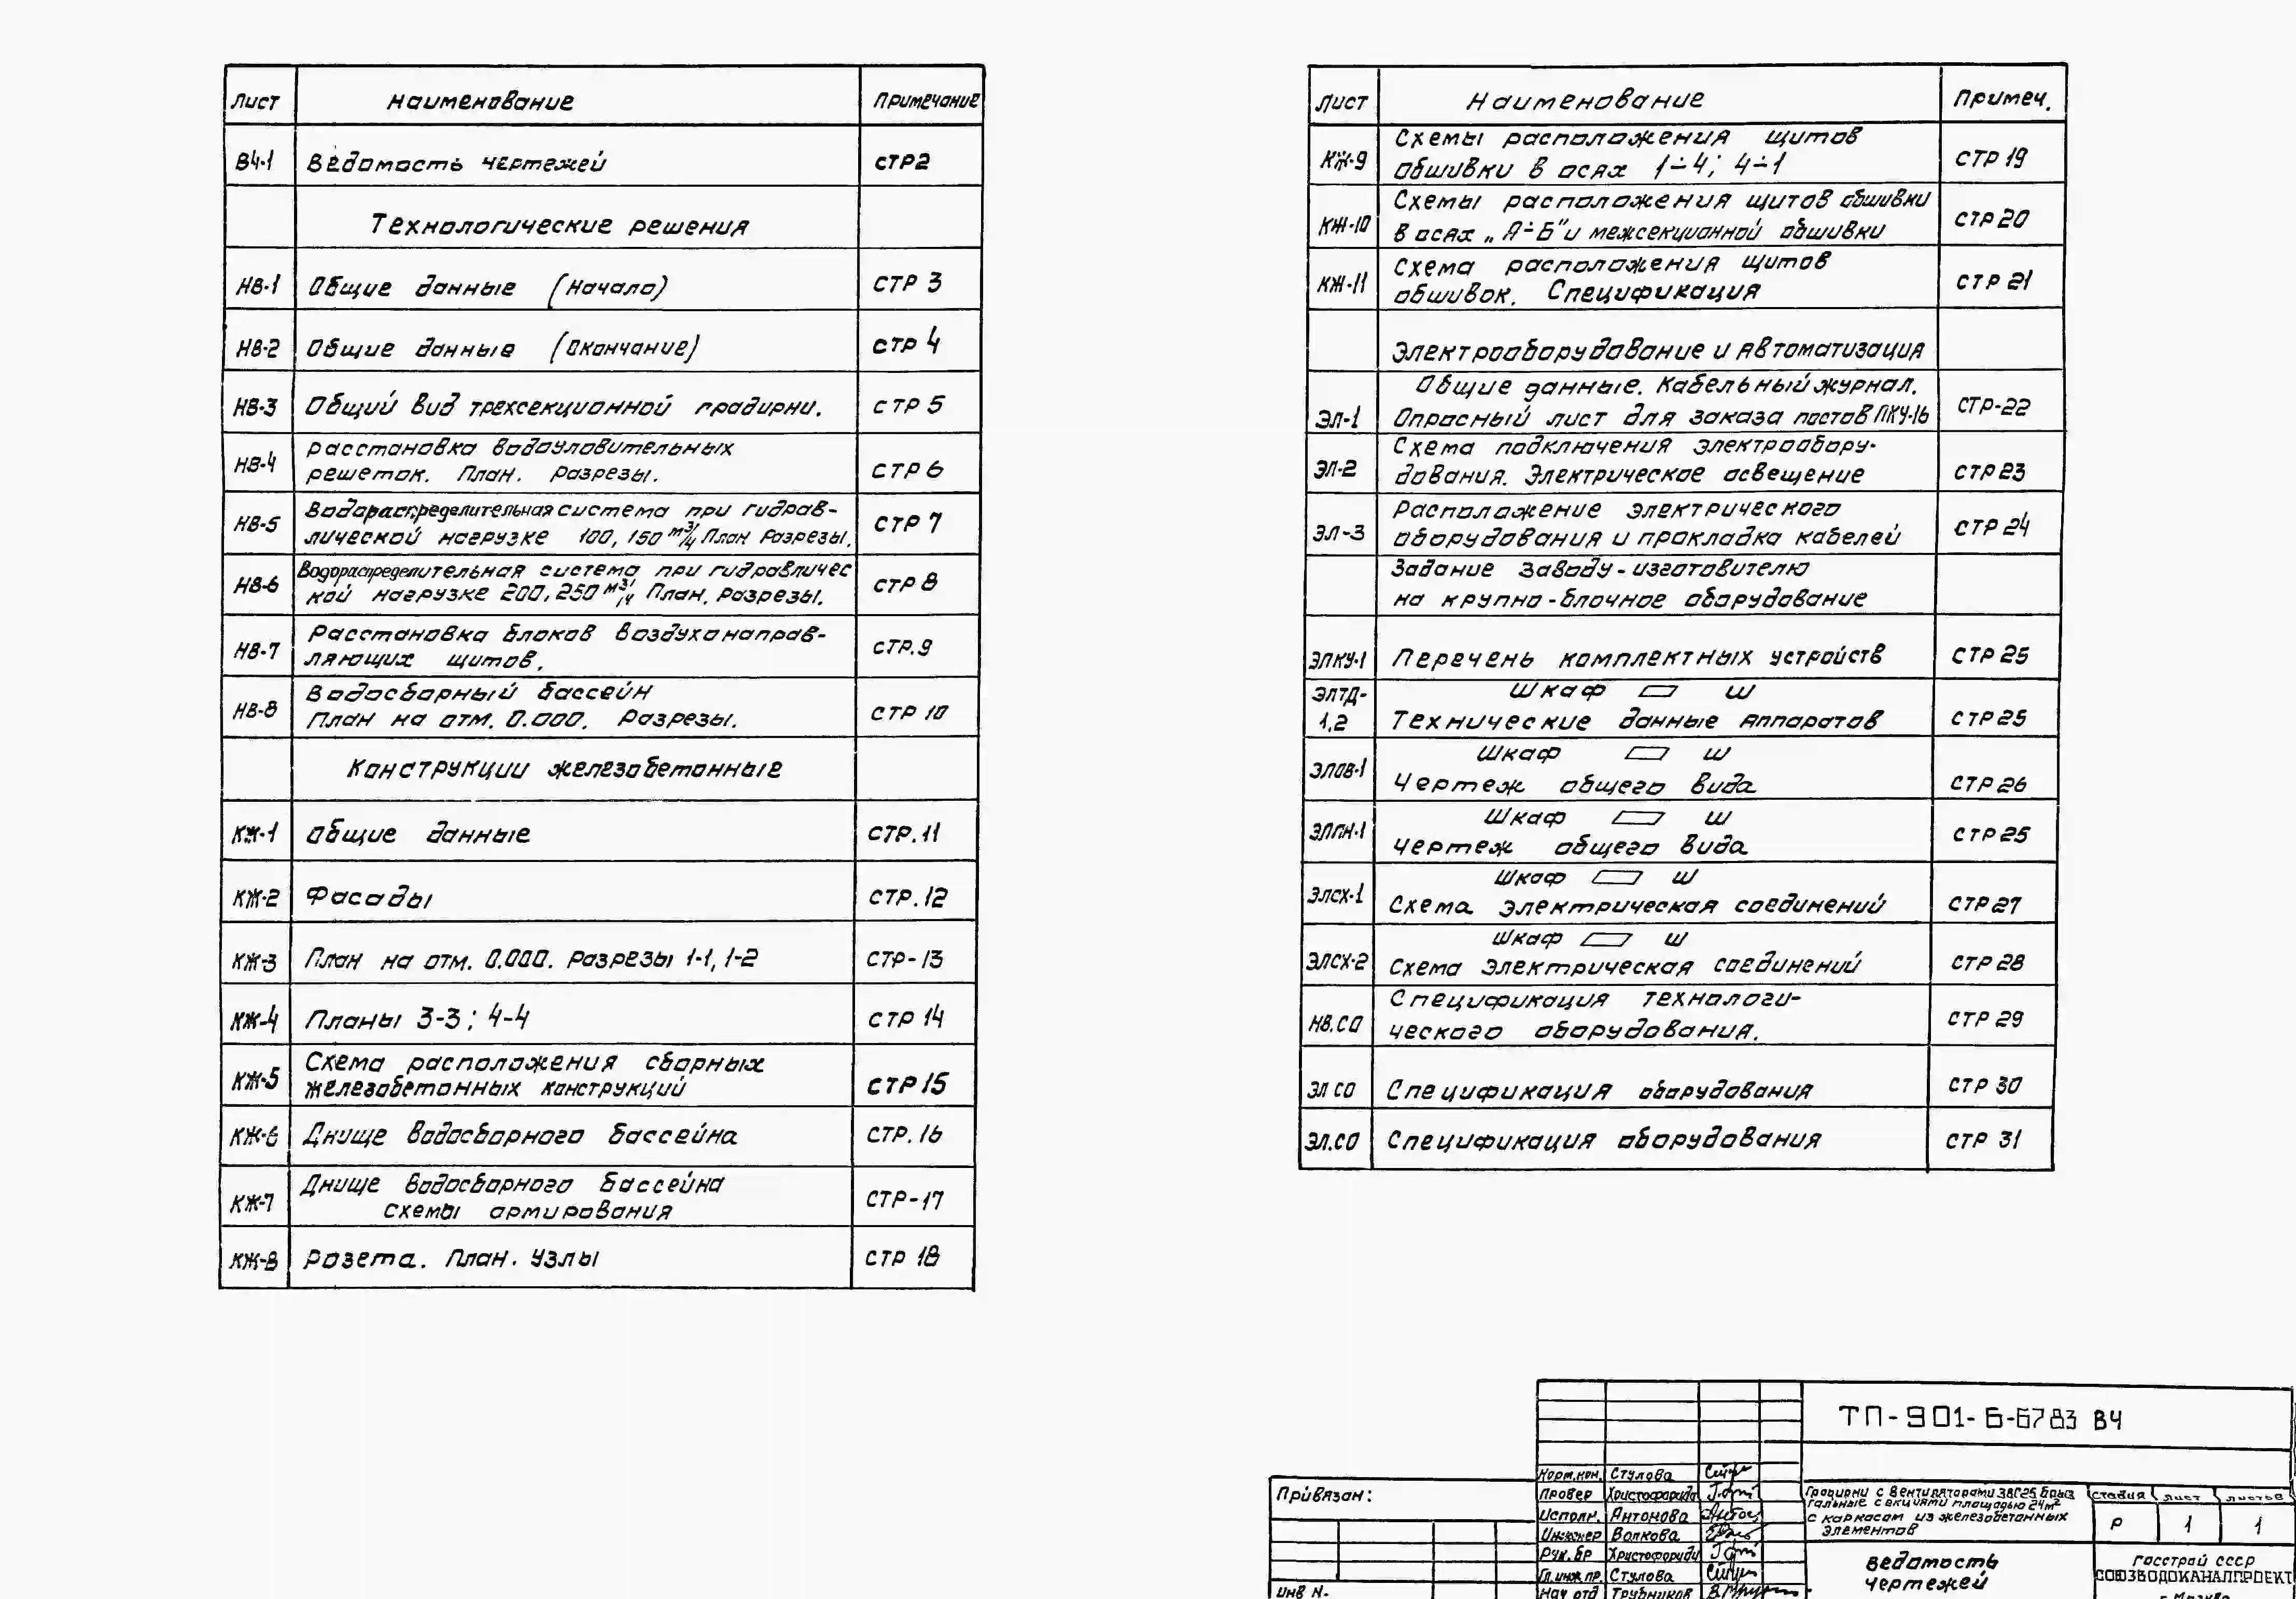 Лист Наименование Примечание
ВЧ-1 Ведомость чертежей стр2
Технологические решения
НВ-1 Общие данные (Начало) стр 3
НВ-2 Общие данные (Окончание) стр 4
НВ-3 Общий вид трехсекционной градирни. стр 5
НВ-4 Расстановка водоуловительных
решеток. План. Разрезы. стр 6
НВ-5 Водораспределительная система при гидрав-
лической нагрузке 100, 150 м³/ч План Разрезы. стр 7
НВ-6 Водораспределительная система при гидравличес
кой нагрузке 200, 250 м³/ч План. Разрезы. стр 8
НВ-7 Расстановка блоков воздухонаправ-
ляющих щитов. стр.9
НВ-8 Водосборный бассейн
План на отм. 0.000. Разрезы. стр 10
Конструкции железобетонные
КЖ-1 Общие данные стр.11
КЖ-2 Фасады стр.12
КЖ-3 План на отм. 0.000. Разрезы 1-1, 1-2 стр-13
КЖ-4 Планы 3-3; 4-4 стр 14
КЖ-5 Схема расположения сборных
железобетонных конструкций стр15
КЖ-6 Днище водосборного бассейна стр.16
КЖ-7 Днище водосборного бассейна
схемы армирования стр-17
КЖ-8 Розета. План. Узлы стр 18
Лист Наименование Примеч.
КЖ-9 Схемы расположения щитов
обшивки в осях 1÷4; 4÷1 стр 19
КЖ-10 Схемы расположения щитов обшивки
в осях „А÷Б" и межсекционной обшивки стр 20
КЖ-11 Схема расположения щитов
обшивок. Спецификация стр 21
Электрооборудование и автоматизация
ЭЛ-1 Общие данные. Кабельный журнал.
Опросный лист для заказа постов ПКУ-16 стр-22
ЭЛ-2 Схема подключения электрообору-
дования. Электрическое освещение стр23
ЭЛ-3 Расположение электрического
оборудования и прокладка кабелей стр 24
Задание заводу-изготовителю
на крупно-блочное оборудование
ЭЛКУ-1 Перечень комплектных устройств стр 25
ЭЛТД- Шкаф Ш
1,2 Технические данные аппаратов стр25
ЭЛОВ-1 Шкаф Ш
Чертеж общего вида стр26
ЭЛПН-1 Шкаф Ш
чертеж общего вида стр25
ЭЛСХ-1 Шкаф Ш
Схема электрическая соединений стр27
ЭЛСХ-2 Шкаф Ш
Схема электрическая соединений стр28
НВ.СО Спецификация технологи-
ческого оборудования. стр 29
ЭЛ СО Спецификация оборудования стр 30
ЭЛ.СО Спецификация оборудования стр 31
ТП-901-6-6783 ВЧ
Привязан:
Инв N.
Норм.кон. Стулова
Провер Христофориди
Исполн. Антонова
Инженер Волкова
Рук. бр Христофориди
Гл.инж.пр. Стулова
Нач отд Трубников
Градирни с вентиляторами 3ВГ25 брыз
гальные с секциями площадью 24м²
с каркасом из железобетонных
элементов
стадия лист листов
Р 1 1
Ведомость
чертежей
Госстрой СССР
СОЮЗВОДОКАНАЛПРОЕКТ
г. Москва